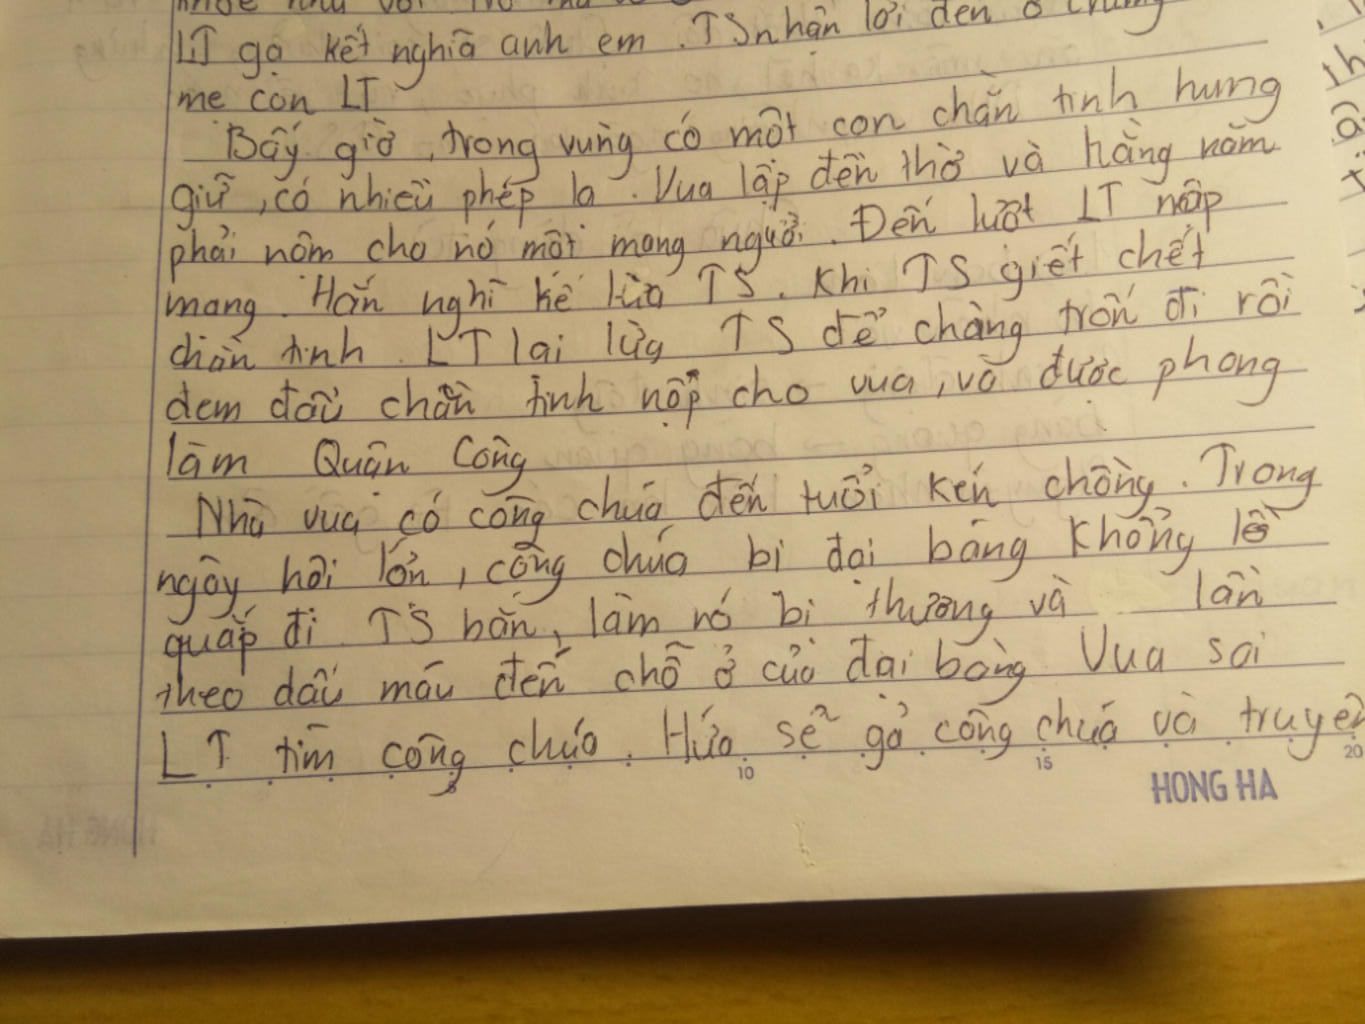 LT gạ kết nghĩa anh em. TS nhận lời đến ở chung
mẹ con LT
Bấy giờ, trong vùng có một con chằn tinh hung
giữ, có nhiều phép lạ. Vua lập đền thờ và hằng năm
phải nôm cho nó một mạng người. Đến lượt LT nộp
mạng. Hắn nghĩ kế lừa TS. Khi TS giết chết
chằn tinh. LT lại lừa TS để chàng trốn đi rồi
đem đầu chằn tinh nộp cho vua, và được phong
làm Quận Công
Nhà vua có công chúa đến tuổi kén chồng. Trong
ngày hội lớn, công chúa bị đại bàng khổng lồ
quắp đi. TS bắn, làm nó bị thương và lần
theo dấu máu đến chỗ ở của đại bàng Vua sai
LT tìm công chúa. Hứa sẽ gả công chúa và truyền
10 15 20
HONG HA